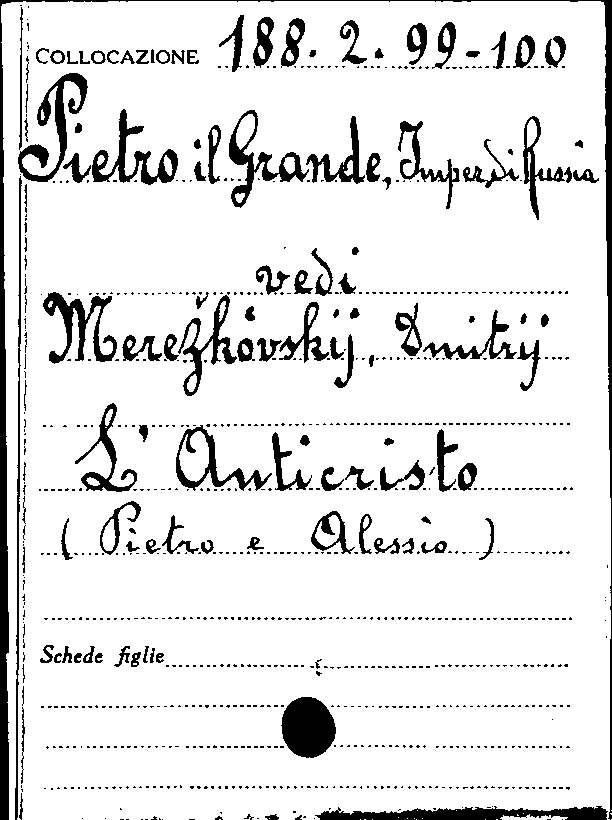 COLLOCAZIONE 188. 2. 99-100
Pietro il Grande, Imper. di Russia
vedi
Merežkóvskij, Dmitrij
L'Anticristo
(Pietro e Alessio)
Schede figlie